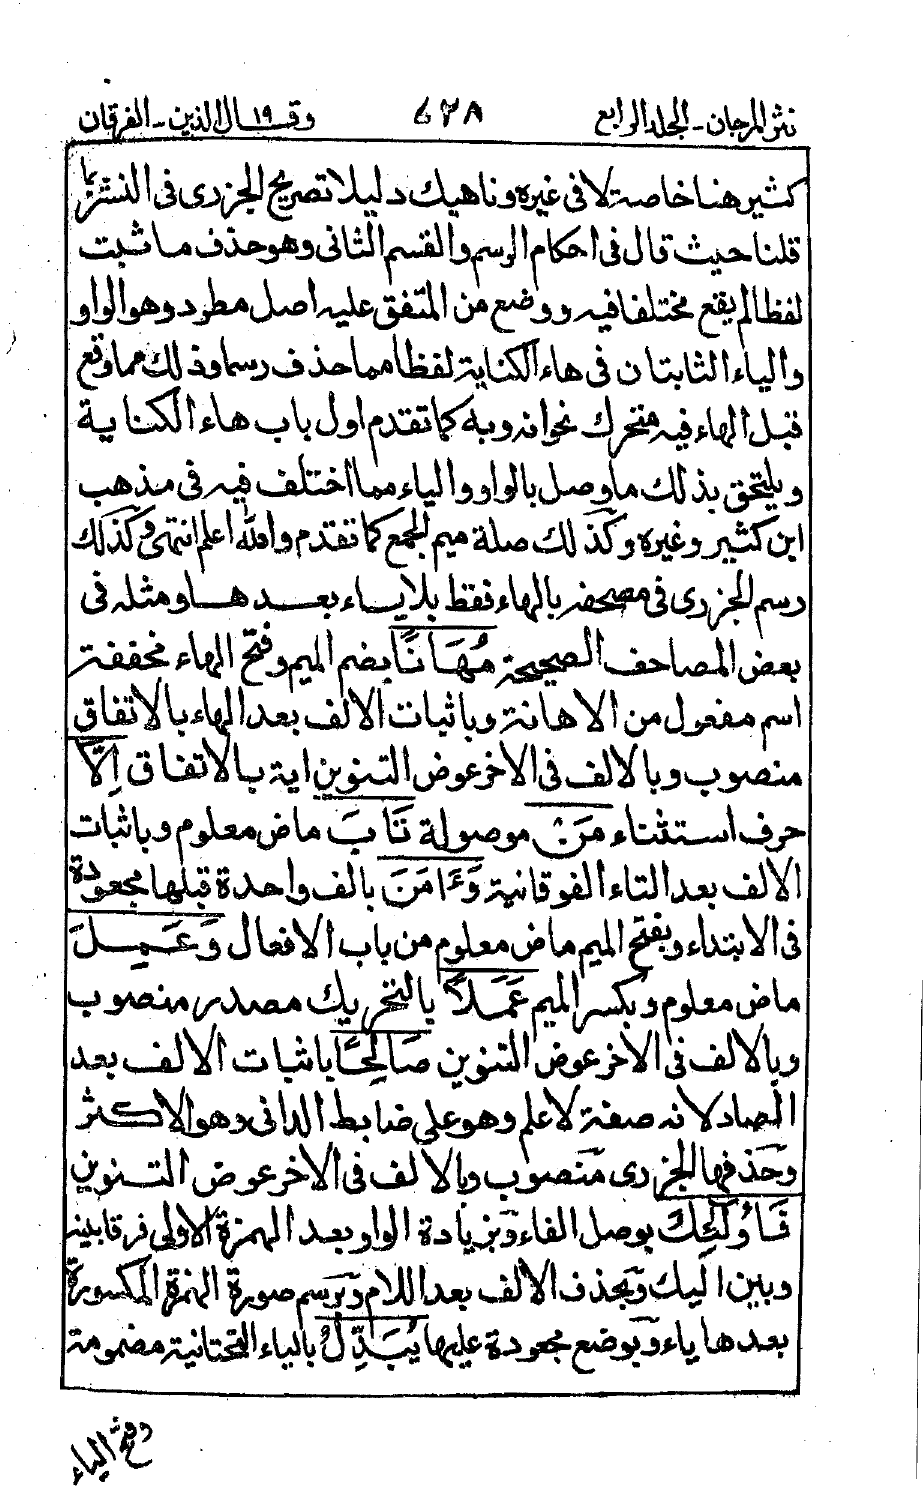 نثر المرجان - الجلد الرابع ٤٢٨ وقال الذين ١٩ - الفرقان
كثير هنا خاصة لا فى غيره وناهيك دليلا تصريح الجزرى فى النشر بما
قلنا حيث قال فى احكام الرسم والقسم الثانى وهو حذف ما ثبت
لفظا لم يقع مختلفا فيه ووضع من المتفق عليه اصل مطرد وهو الواو
والياء الثابتان فى هاء الكناية لفظا مما حذف رسما وذلك مما وقع
قبل الهاء فيه متحرك نحو انه وبه كما تقدم اول باب هاء الكناية
ويلتحق بذلك ما وصل بالواو والياء مما اختلف فيه فى مذهب
ابن كثير وغيره وكذلك صلة ميم الجمع كما تقدم والله اعلم انتهى وكذلك
رسم الجزرى فى مصحفه بالهاء فقط بلا ياء بعدها ومثله فى
بعض المصاحف الصحيحة مُهَانًا بضم الميم وفتح الهاء مخففة
اسم مفعول من الاهانة وباثبات الالف بعد الهاء بالاتفاق
منصوب وبالالف فى الاخر عوض التنوين اية بالاتفاق اِلَّا
حرف استثناء مَنْ موصولة تَابَ ماض معلوم وباثبات
الالف بعد التاء الفوقانية وَءَامَنَ بالف واحدة قبلها مجعودة
فى الابتداء وبفتح الميم ماض معلوم من باب الافعال وَعَمِلَ
ماض معلوم وبكسر الميم عَمَلًا بالتحريك مصدر منصوب
وبالالف فى الاخر عوض التنوين صَالِحًا باثبات الالف بعد
الصاد لانه صفة لا علم وهو على ضابط الدانى وهو الاكثر
وحذفها الجزرى منصوب وبالالف فى الاخر عوض التنوين
فَاُولٰٓئِكَ بوصل الفاء وبزيادة الواو بعد الهمزة الاولى فرقا بينه
وبين اليك وبحذف الالف بعد اللام وبرسم صورة الهمزة المكسورة
بعدها ياء وبوضع مجعودة عليها يُبَدِّلُ بالياء التحتانية مضمومة
وفتح الباء